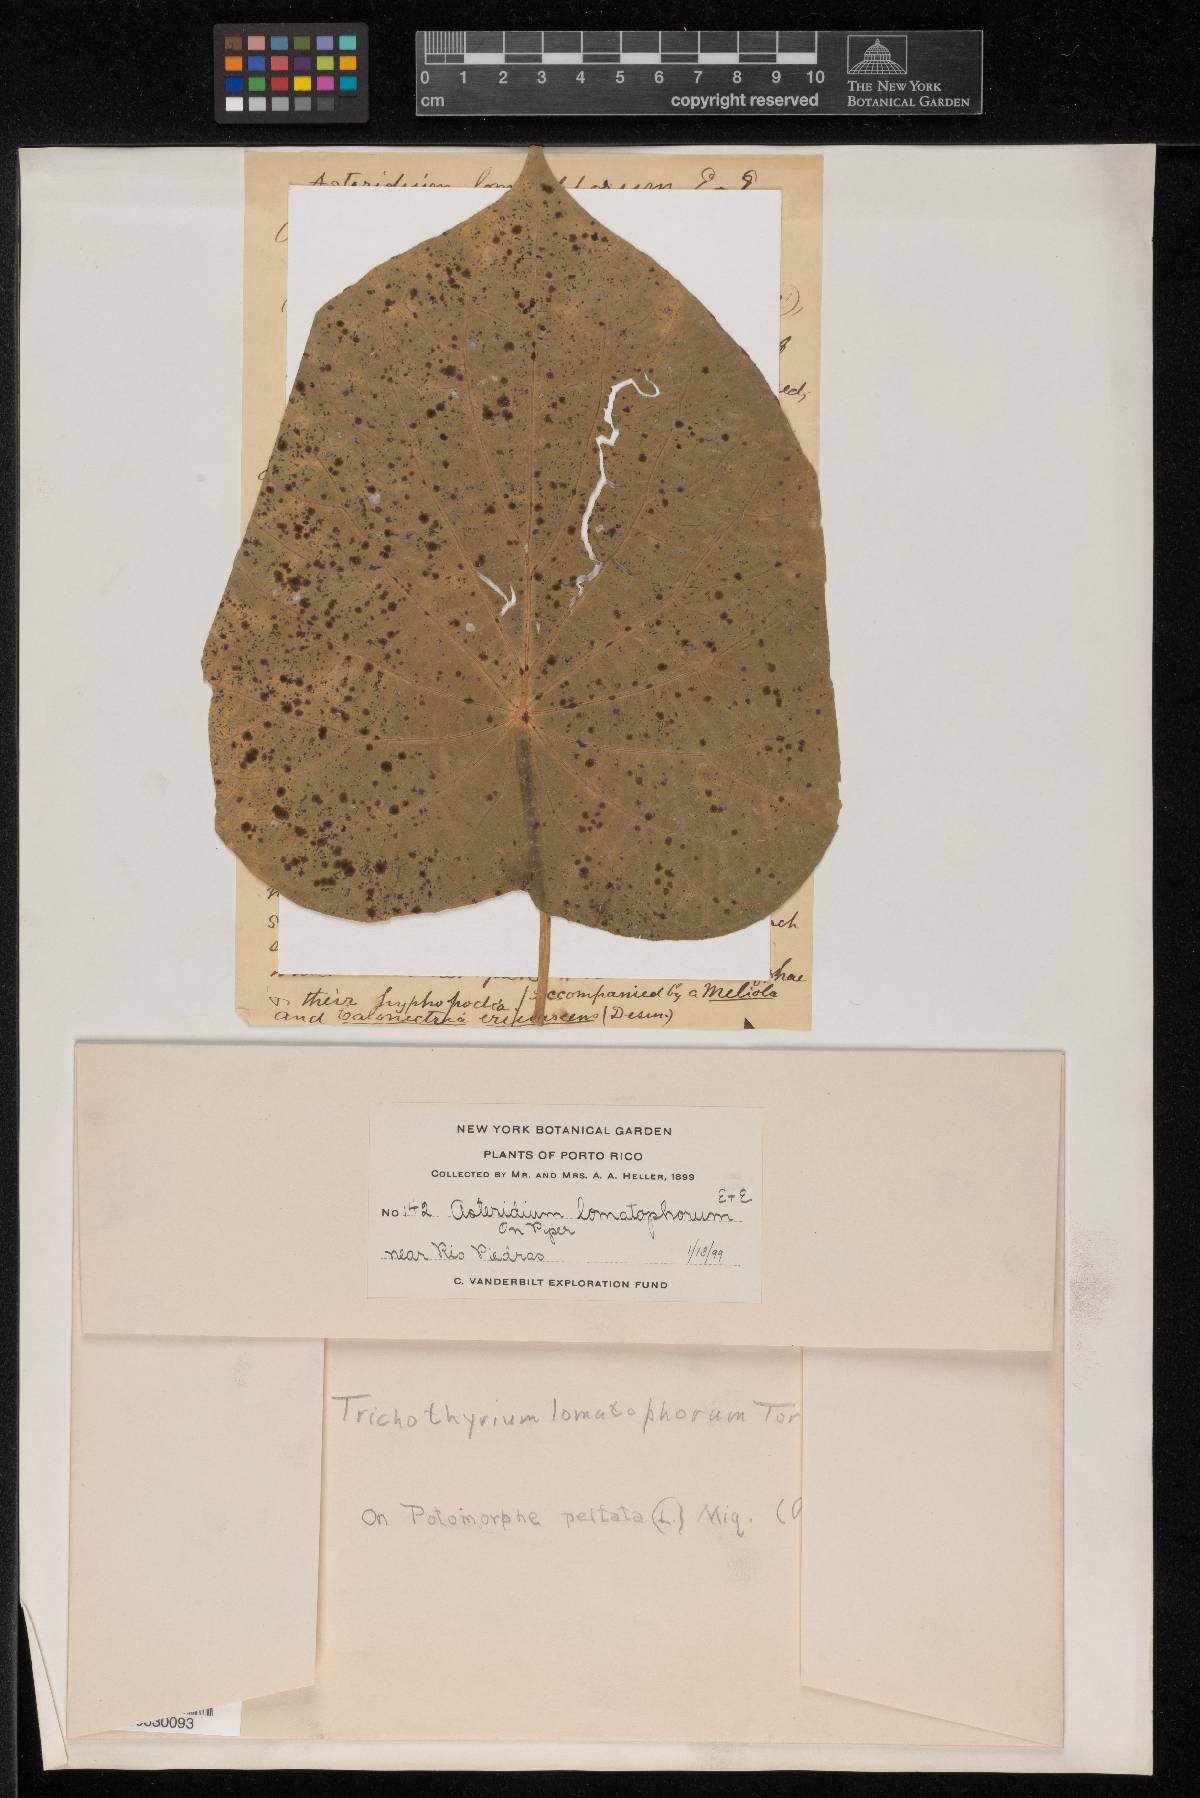 0 1 2 3 4 5 6 7 8 9 10
cm
copyright reserved
THE NEW YORK
BOTANICAL GARDEN
Asteridium E. E
ed;
ch
hae
their hyphopodia / accompanied by a Meliola
and Calonectria erubescens (Desm.)
NEW YORK BOTANICAL GARDEN
PLANTS OF PORTO RICO
COLLECTED BY MR. AND MRS. A. A. HELLER, 1899
E+E
No 142 Asteridium lomatophorum
On Piper
near Rio Piedras 1/18/99
C. VANDERBILT EXPLORATION FUND
Trichothyrium lomatophorum Tor
On Potomorphe peltata (L.) Miq. (
30093